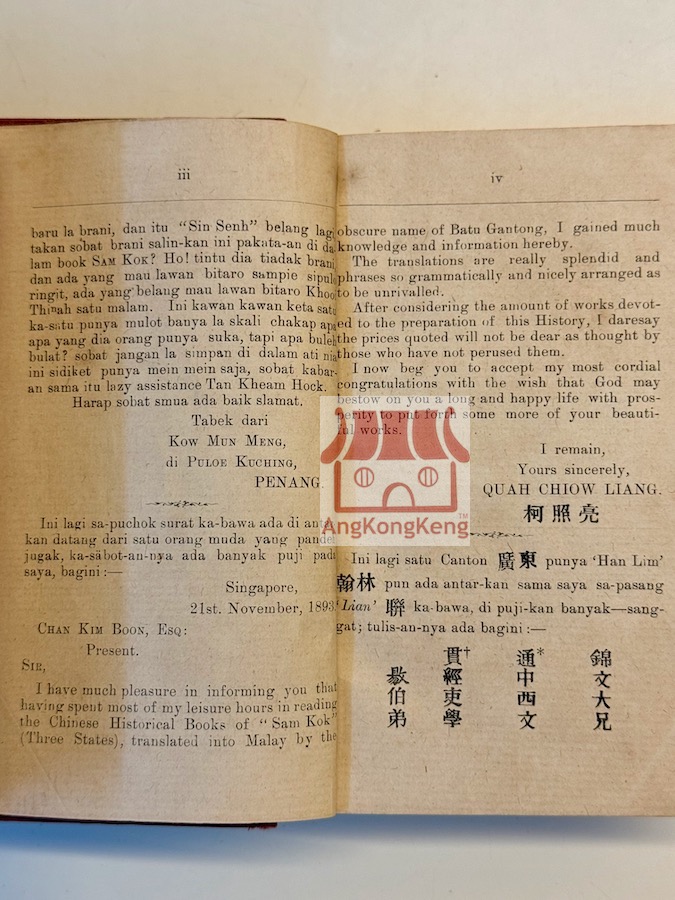 iii
baru la brani, dan itu "Sin Senh" belang lagi
takan sobat brani salin-kan ini pakata-an di da
lam book SAM KOK? Ho! tintu dia tiadak brani,
dan ada yang mau lawan bitaro sampie sipulo
ringit, ada yang belang mau lawan bitaro Khoo
Thinah satu malam. Ini kawan kawan keta satu
ka-satu punya mulot banya la skali chakap apa
apa yang dia orang punya suka, tapi apa buleh
bulat? sobat jangan la simpan di dalam ati nia
ini sidiket punya mein mein saja, sobat kabar-
an sama itu lazy assistance Tan Kheam Hock.
Harap sobat smua ada baik slamat.
Tabek dari
KOW MUN MENG,
di PULOE KUCHING,
PENANG.
Ini lagi sa-puchok surat ka-bawa ada di antar
kan datang dari satu orang muda yang pandei
jugak, ka-sabot-an-nya ada banyak puji pada
saya, bagini:—
Singapore,
21st. November, 1893.
CHAN KIM BOON, ESQ:
Present.
SIR,
I have much pleasure in informing you that
having spent most of my leisure hours in reading
the Chinese Historical Books of "Sam Kok"
(Three States), translated into Malay by the
iv
obscure name of Batu Gantong, I gained much
knowledge and information hereby.
The translations are really splendid and
phrases so grammatically and nicely arranged as
to be unrivalled.
After considering the amount of works devot-
ed to the preparation of this History, I daresay
the prices quoted will not be dear as thought by
those who have not perused them.
I now beg you to accept my most cordial
congratulations with the wish that God may
bestow on you a long and happy life with pros-
perity to put forth some more of your beauti-
ful works.
I remain,
Yours sincerely,
QUAH CHIOW LIANG.
柯照亮
Ini lagi satu Canton 廣東 punya 'Han Lim'
翰林 pun ada antar-kan sama saya sa-pasang
'Lian' 聯 ka-bawa, di puji-kan banyak—sang-
gat; tulis-an-nya ada bagini:—
錦文大兄
通*中西文
貫†經史學
伯弟
AngKongKeng™